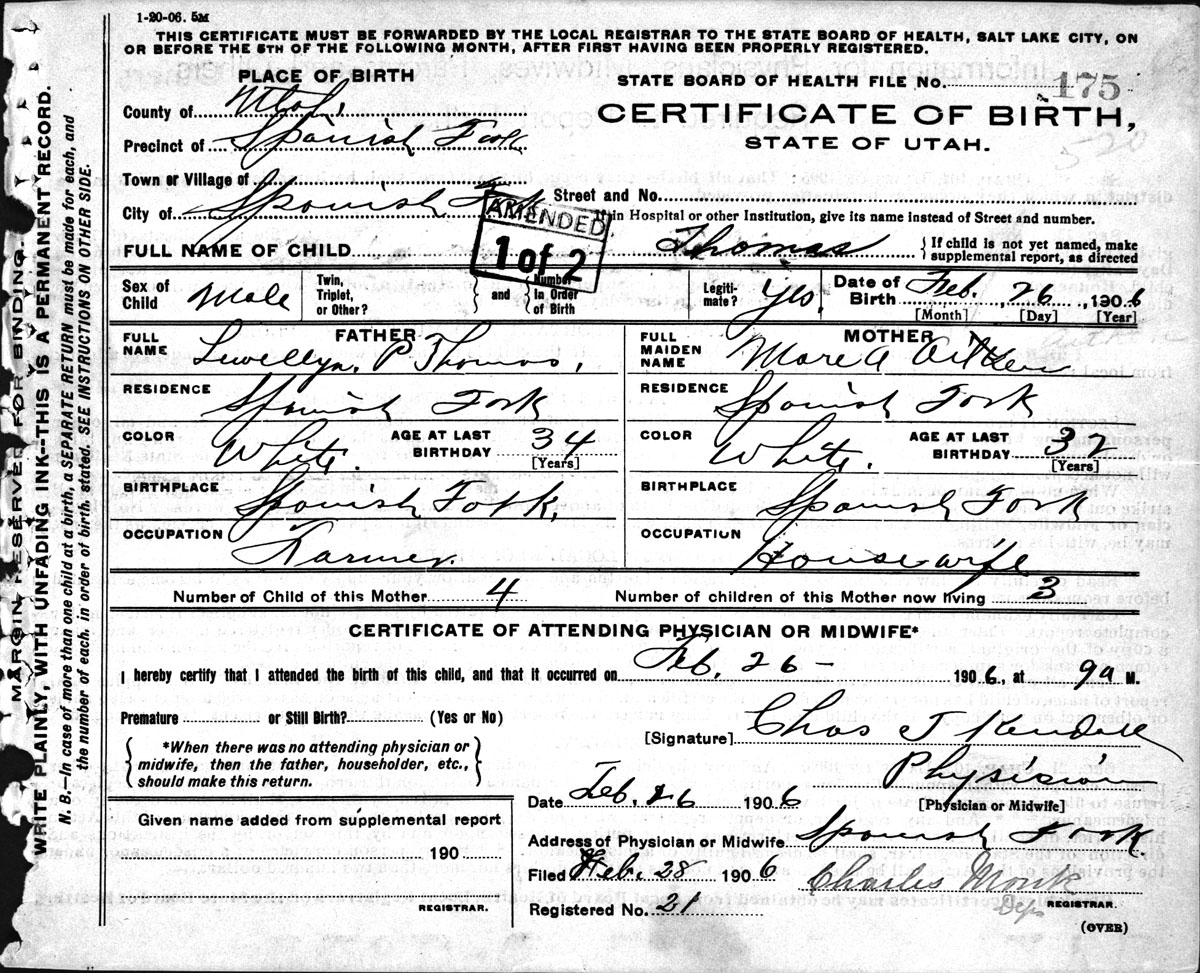 1-20-06. 5M
THIS CERTIFICATE MUST BE FORWARDED BY THE LOCAL REGISTRAR TO THE STATE BOARD OF HEALTH, SALT LAKE CITY, ON
OR BEFORE THE 5TH OF THE FOLLOWING MONTH, AFTER FIRST HAVING BEEN PROPERLY REGISTERED.
PLACE OF BIRTH
STATE BOARD OF HEALTH FILE No. 175
County of Utah
CERTIFICATE OF BIRTH,
STATE OF UTAH.
520
Precinct of Spanish Fork
Town or Village of
Street and No.
City of Spanish Fork
If in Hospital or other Institution, give its name instead of Street and number.
AMENDED
1 of 2
FULL NAME OF CHILD Thomas { If child is not yet named, make
supplemental report, as directed
Sex of Child Male
Twin, Triplet, or Other? } and { Number In Order of Birth
Legiti-mate? Yes
Date of Birth Feb. 26, 1906
[Month] [Day] [Year]
FATHER
MOTHER
Aitken
FULL NAME Lewellyn P Thomas,
FULL MAIDEN NAME Mare A Aitken
RESIDENCE Spanish Fork
RESIDENCE Spanish Fork
COLOR White. AGE AT LAST BIRTHDAY 34 [Years]
COLOR White. AGE AT LAST BIRTHDAY 32 [Years]
BIRTHPLACE Spanish Fork,
BIRTHPLACE Spanish Fork
OCCUPATION Farmer.
OCCUPATION Housewife
Number of Child of this Mother 4 Number of children of this Mother now living 3
CERTIFICATE OF ATTENDING PHYSICIAN OR MIDWIFE*
I hereby certify that I attended the birth of this child, and that it occurred on Feb, 26- 1906, at 9a M.
Premature or Still Birth? (Yes or No)
[Signature] Chas J
{ *When there was no attending physician or
midwife, then the father, householder, etc.,
should make this return. }
Physision
[Physician or Midwife]
Date Feb, 26 1906
Given name added from supplemental report
190
REGISTRAR.
Address of Physician or Midwife Spanish Fork.
Filed Feb. 28 1906 Charles Monk
Dep REGISTRAR.
Registered No. 21
(OVER)
MARGIN RESERVED FOR BINDING.
WRITE PLAINLY, WITH UNFADING INK--THIS IS A PERMANENT RECORD.
N. B.--In case of more than one child at a birth, a SEPARATE RETURN must be made for each, and
the number of each, in order of birth, stated. SEE INSTRUCTIONS ON OTHER SIDE.